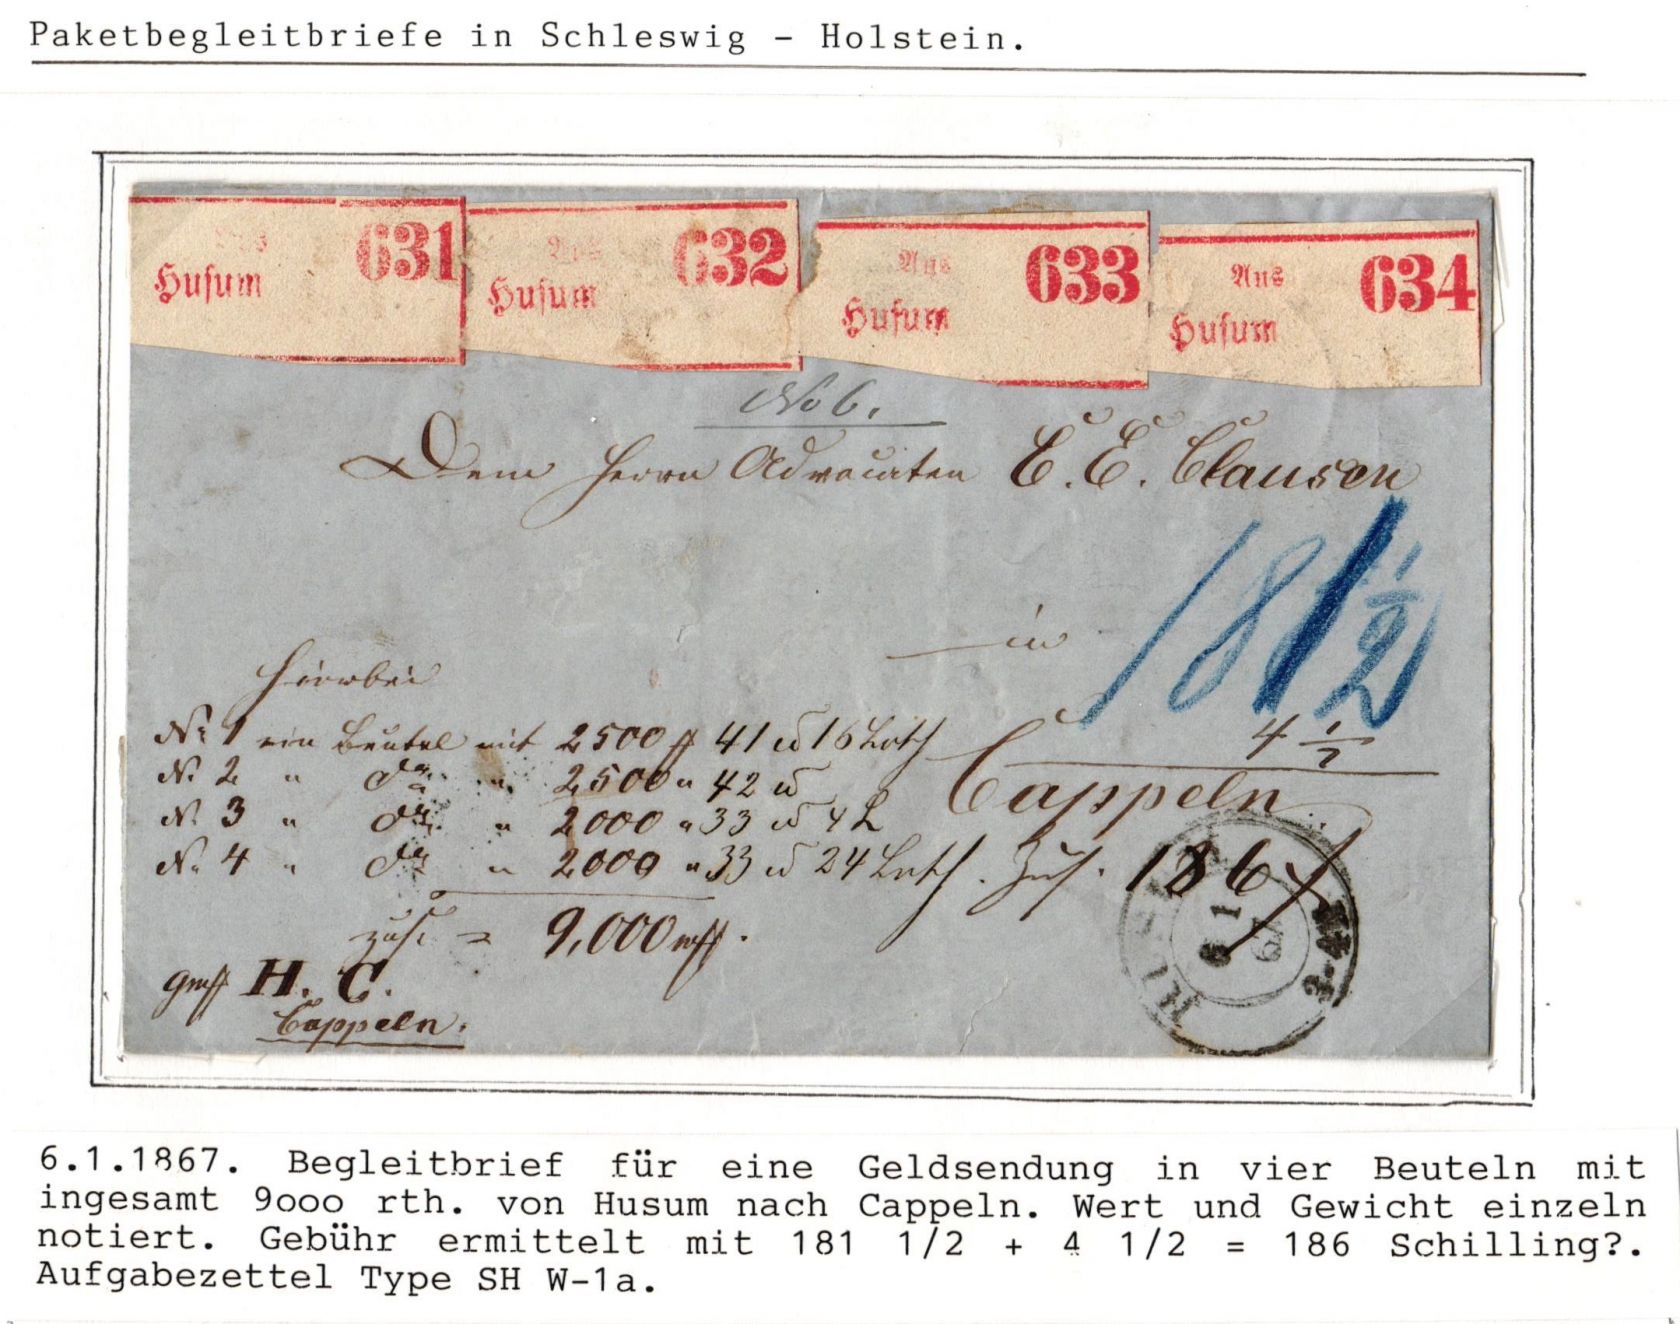 Paketbegleitbriefe in Schleswig - Holstein.
Aus Husum 631
Aus Husum 632
Aus Husum 633
Aus Husum 634
No 6.
Dem Herrn Advocaten C. E. Clausen
181 1/2
in
4 1/2
Cappeln
Hierbei
No 1 ein Beutel mit 2500 41 16 Loth
No 2 " do " 2500 " 42
No 3 " do " 2000 " 33 4 L
No. 4 " do " 2000 " 33 24 Loth. Zus. 186
zus. = 9,000
gez. H. C.
Cappeln.
HUSUM
6 1
67
3-4
6.1.1867. Begleitbrief für eine Geldsendung in vier Beuteln mit
ingesamt 9ooo rth. von Husum nach Cappeln. Wert und Gewicht einzeln
notiert. Gebühr ermittelt mit 181 1/2 + 4 1/2 = 186 Schilling?.
Aufgabezettel Type SH W-1a.